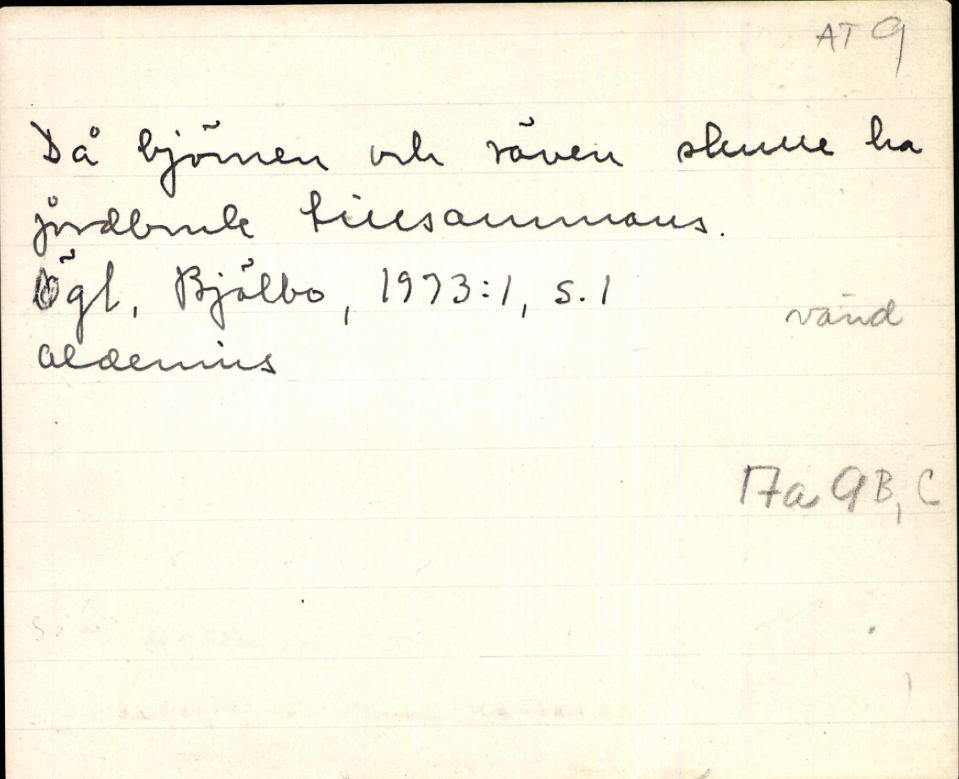 AT 9
Då björnen och räven skulle ha
jordbruk tillsammans.
Ögl, Bjälbo, 1973:1, s. 1
vänd
Aldenius
17a 9B, C